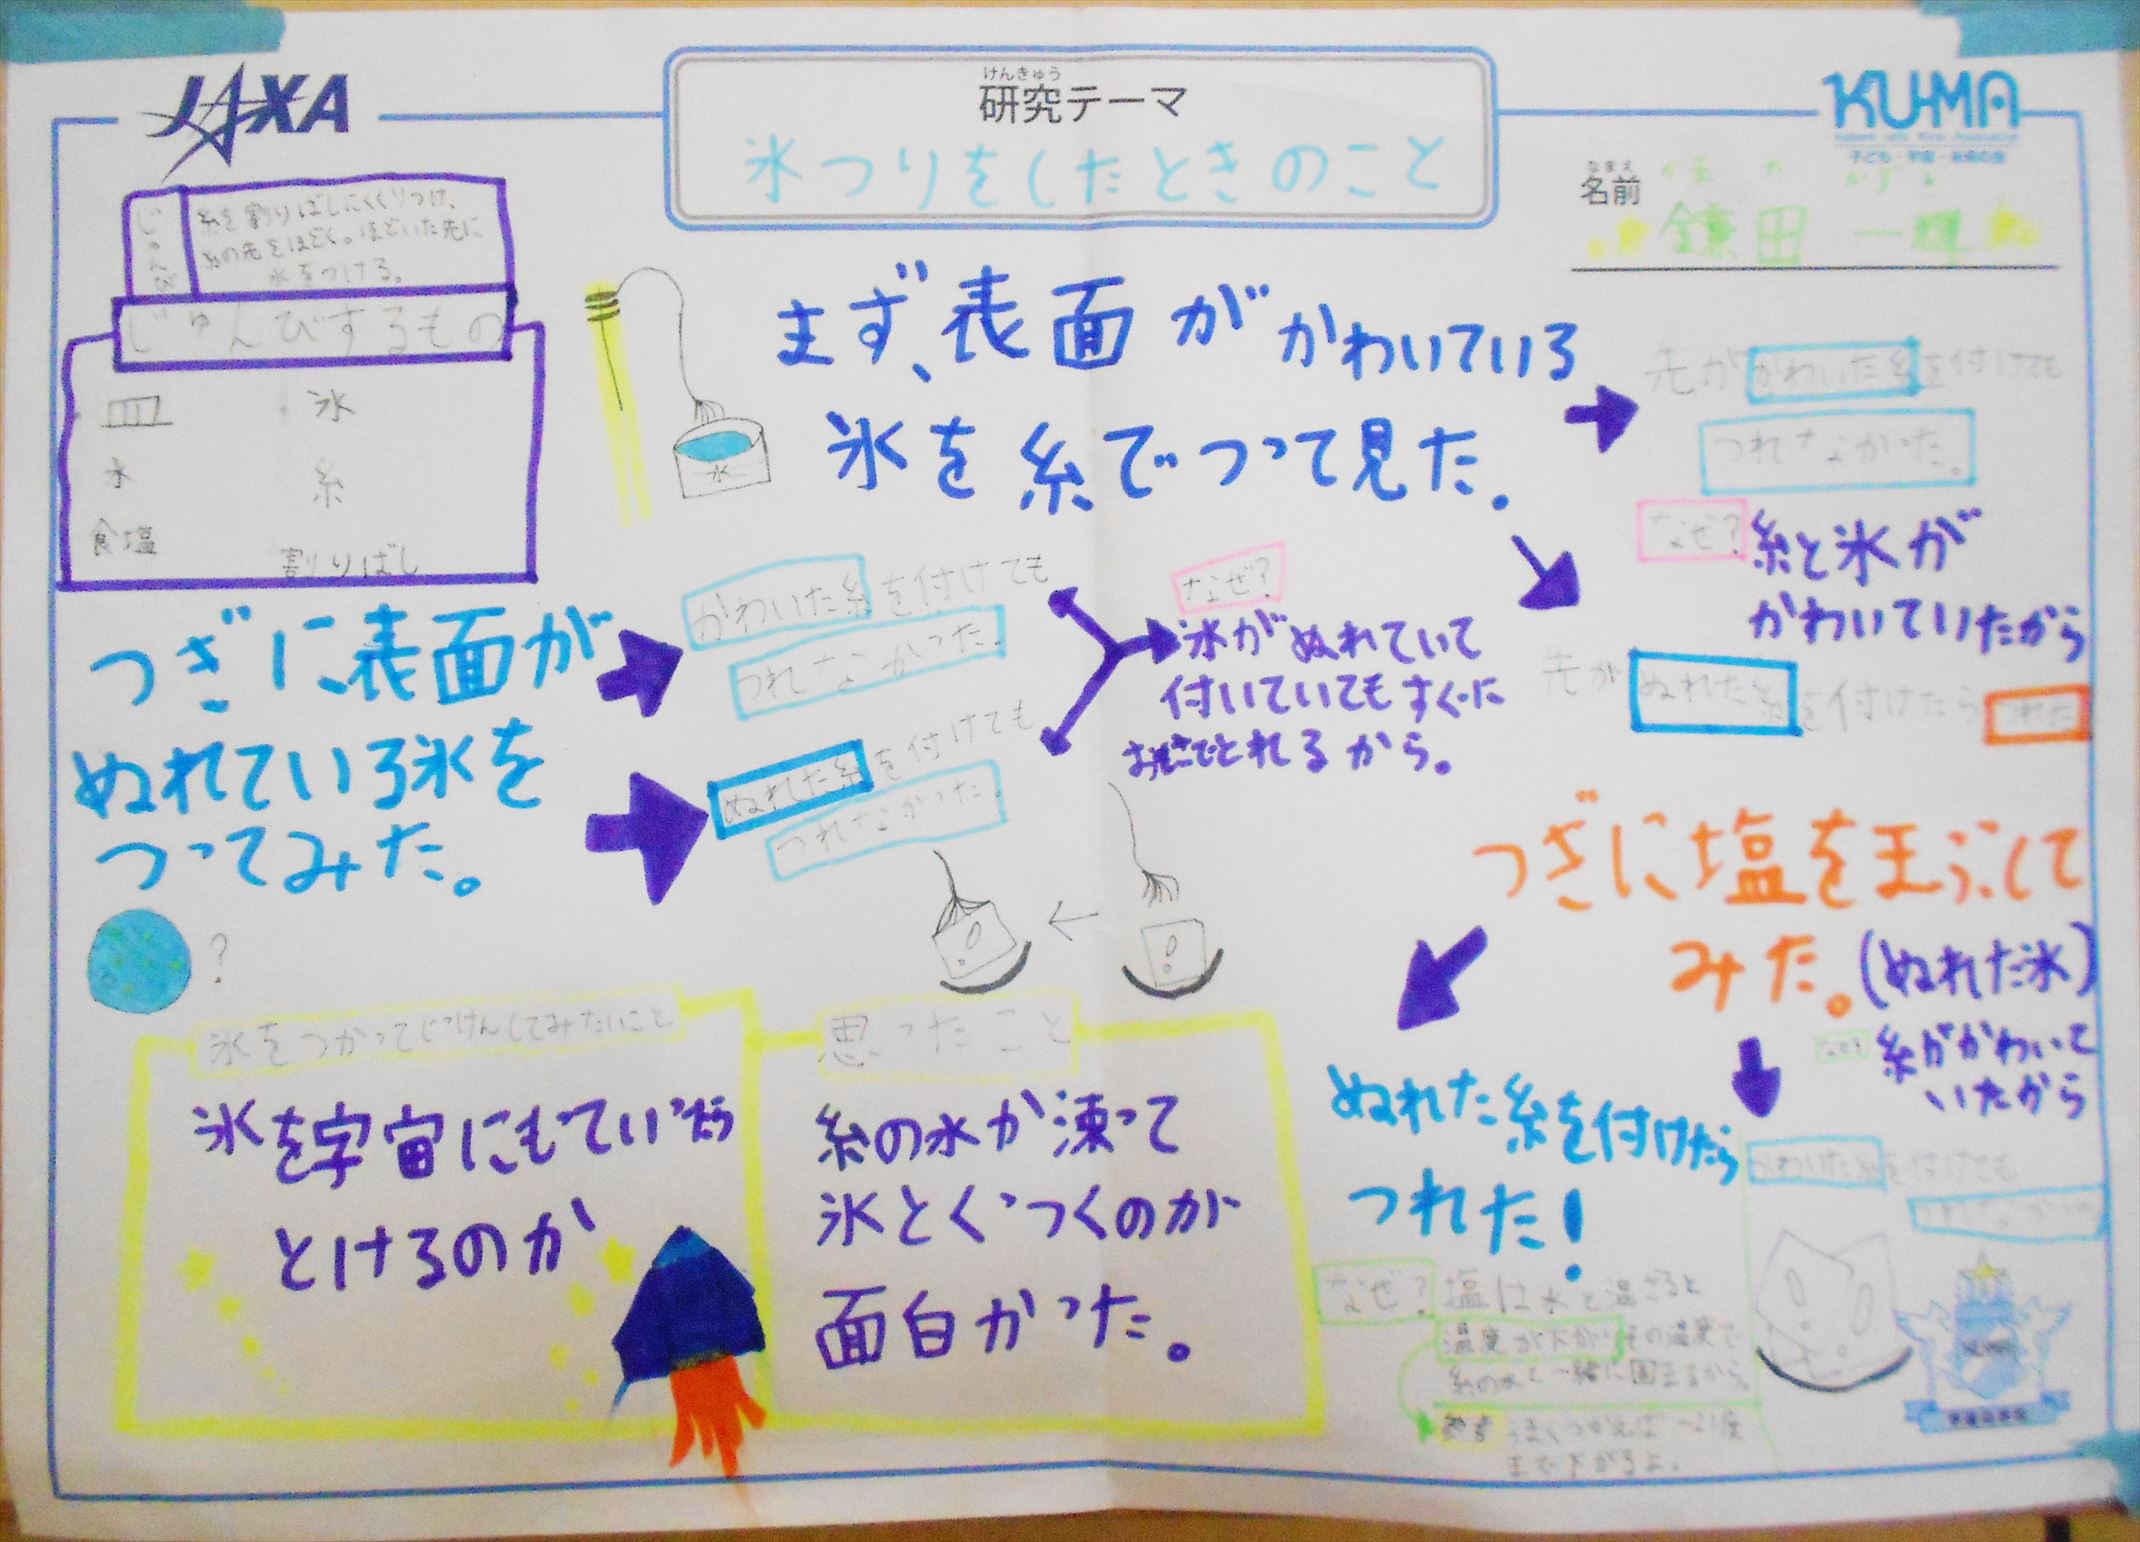 JAXA
けんきゅう
研究テーマ
氷つりをしたときのこと
KU-MA
子ども・宇宙・未来の会
なまえ
名前
鎌田 一輝
じゅんび
糸を割りばしにくくりつけ、
糸の先をほどく。ほどいた先に
水をつける。
じゅんびするもの
皿 氷
水 糸
食塩 割りばし
水
まず、表面がかわいている
氷を糸でつって見た。
先がかわいた糸を付けても
つれなかった。
なぜ?
糸と氷が
かわいていたから
先がぬれた糸を付けたら つれた
つぎに表面が
ぬれている氷を
つってみた。
かわいた糸を付けても
つれなかった。
ぬれた糸を付けても
つれなかった。
なぜ?
氷がぬれていて
付いていてもすぐに
とれるから。
つぎに塩をまぶして
みた。(ぬれた氷)
なぜ? 糸がかわいて
いたから
かわいた糸を付けても
つれなかった
ぬれた糸を付けたら
つれた!
なぜ? 塩は氷と混ざると
温度が下がりその温度で
糸の水と一緒に固まるから。
うまくつかえば-21度
まで下がるよ。
?
氷をつかってじっけんしてみたいこと
氷を宇宙にもていったら
とけるのか
思ったこと
糸の水が凍って
氷とくっつくのが
面白かった。